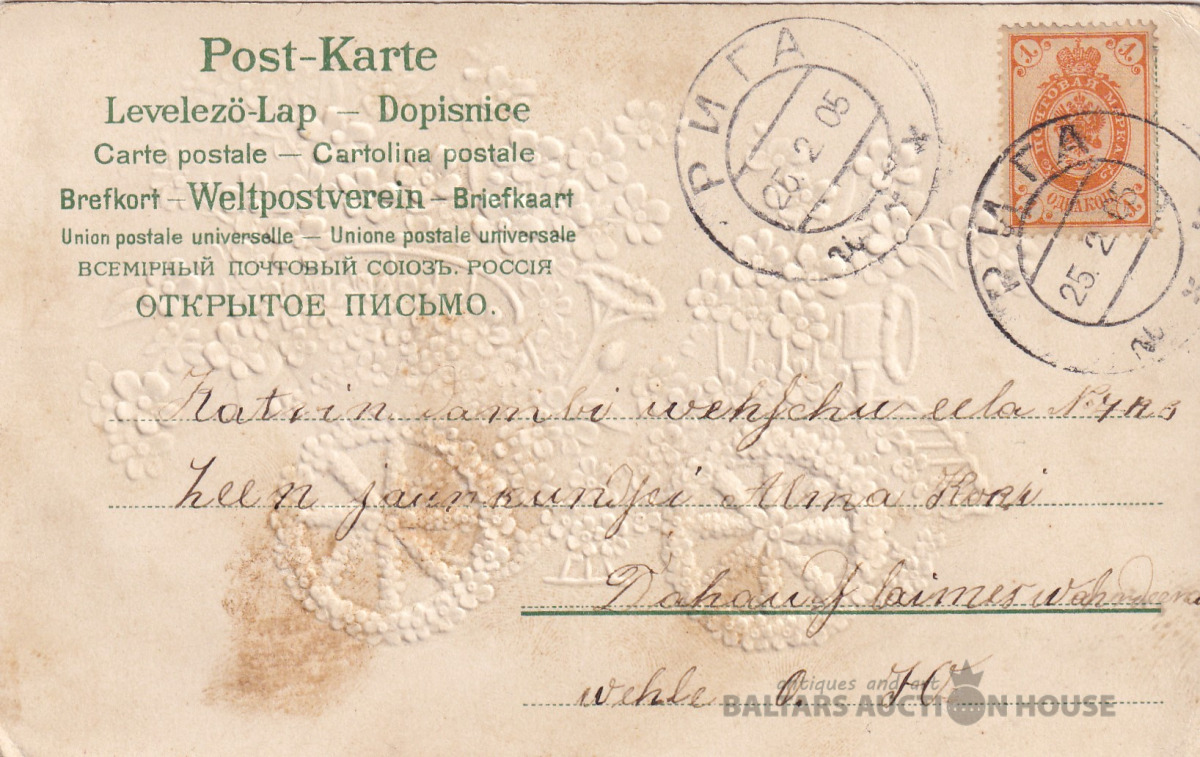 Post-Karte
Levelezö-Lap — Dopisnice
Carte postale — Cartolina postale
Brefkort – Weltpostverein – Briefkaart
Union postale universelle — Unione postale universale
ВСЕМІРНЫЙ ПОЧТОВЫЙ СОЮЗЪ. РОССІЯ
ОТКРЫТОЕ ПИСЬМО.
РИГА
25. 2 05
1 1
ПОЧТОВАЯ МАРКА
РИГА
25. 2 05
Katrin dambi wehſchu eela
Alma
Dahau laimes
wehle O. K
antiques and art
BALTARS AUCTION HOUSE